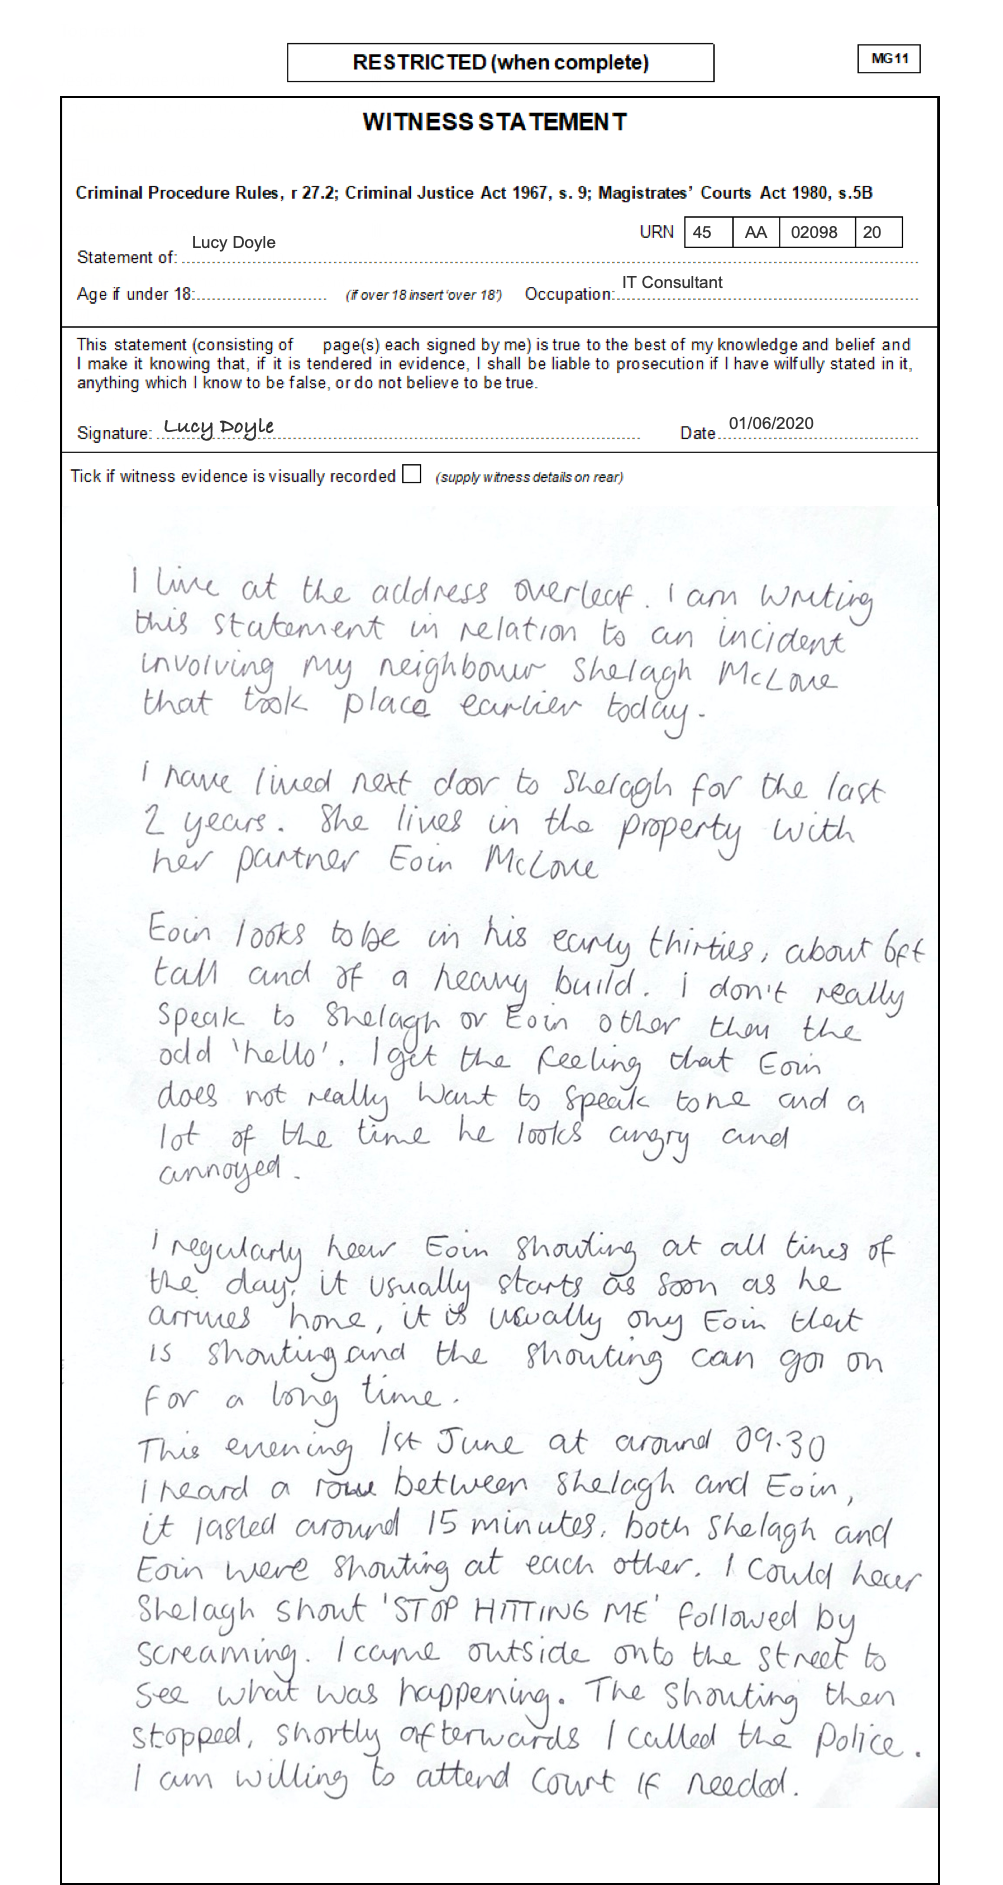 RESTRICTED (when complete)
MG11
WITNESS STATEMENT
Criminal Procedure Rules, r 27.2; Criminal Justice Act 1967, s. 9; Magistrates' Courts Act 1980, s.5B
URN 45 AA 02098 20
Statement of: Lucy Doyle
Age if under 18: (if over 18 insert 'over 18') Occupation: IT Consultant
This statement (consisting of page(s) each signed by me) is true to the best of my knowledge and belief and
I make it knowing that, if it is tendered in evidence, I shall be liable to prosecution if I have wilfully stated in it,
anything which I know to be false, or do not believe to be true.
Signature: Lucy Doyle Date 01/06/2020
Tick if witness evidence is visually recorded (supply witness details on rear)
I live at the address overleaf. I am writing
this statement in relation to an incident
involving my neighbour Shelagh McLove
that took place earlier today.
I have lived next door to Shelagh for the last
2 years. She lives in the property with
her partner Eoin McLove
Eoin looks to be in his early thirties, about 6ft
tall and of a heavy build. I don't really
speak to Shelagh or Eoin other then the
odd 'hello'. I get the feeling that Eoin
does not really want to speak to me and a
lot of the time he looks angry and
annoyed.
I regularly hear Eoin shouting at all times of
the day, it usually starts as soon as he
arrives home, it is usually ony Eoin that
is shouting and the shouting can go on
for a long time.
This evening 1st June at around 09.30
I heard a row between Shelagh and Eoin,
it lasted around 15 minutes, both Shelagh and
Eoin were shouting at each other. I could hear
Shelagh shout 'STOP HITTING ME' followed by
screaming. I came outside onto the street to
see what was happening. The shouting then
stopped, shortly afterwards I called the Police.
I am willing to attend court if needed.